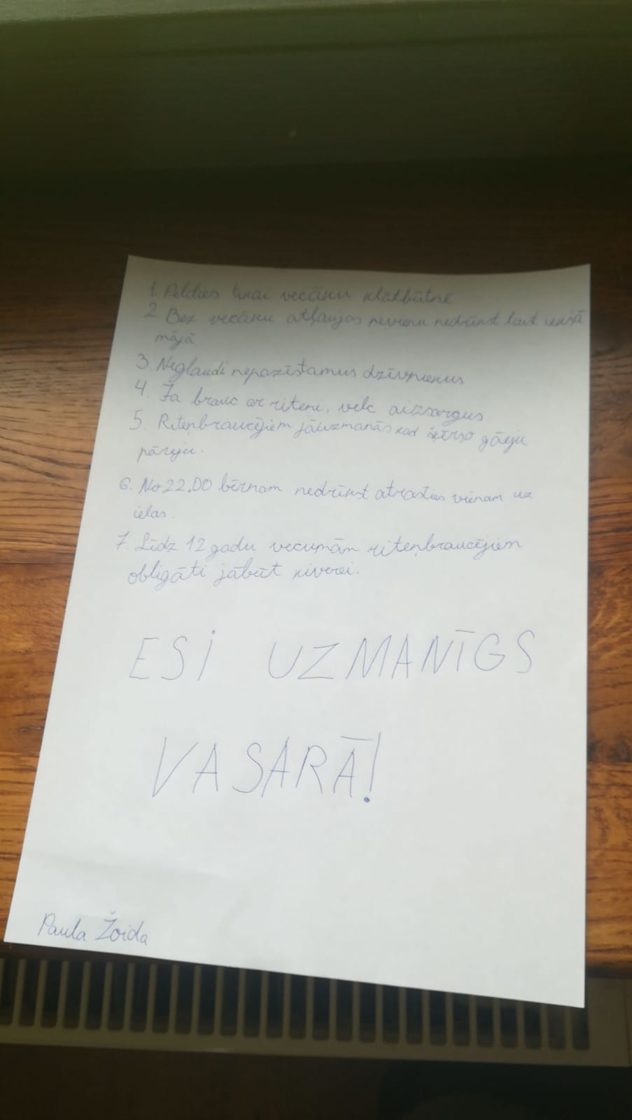 1. Peldies tikai vecāku klātbūtnē
2. Bez vecāku atļaujas nevienu nedrīkst laist iekšā
mājā
3. Neglaudi nepazīstamus dzīvniekus
4. Ja brauc ar riteni, velc aizsargus
5. Riteņbraucējiem jāuzmanās kad šķērso gājēju
pāreju.
6. No 22.00 bērnam nedrīkst atrasties vienam uz
ielas.
7. Līdz 12 gadu vecumām riteņbraucējiem
obligāti jābūt ķiverei.
ESI UZMANĪGS
VASARĀ!
Paula Žoida